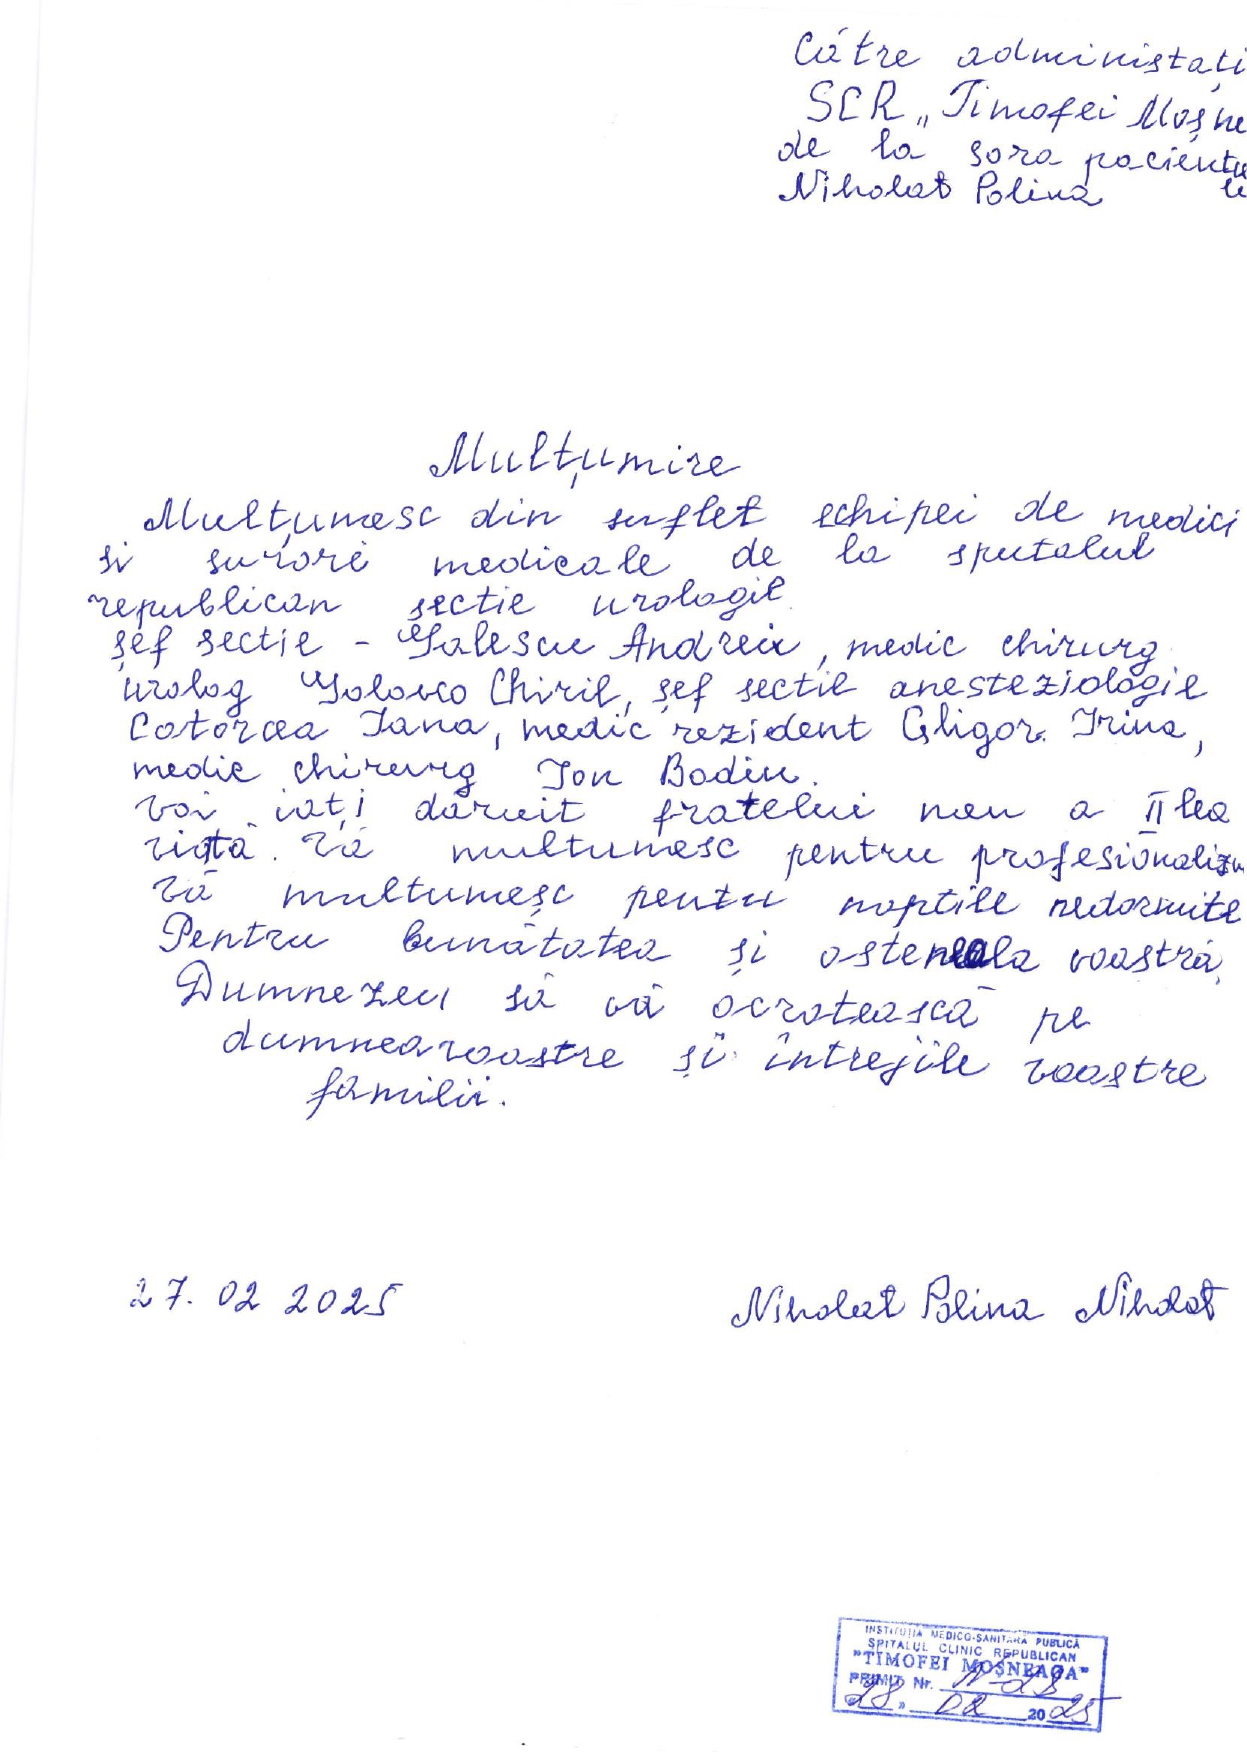 Către administați
SCR „Timofei Moșne
de la sora pacientu
Niholat Polina lu
Mulțumire
Mulțumesc din suflet echipei de medici
si surori medicale de la sputalul
republican sectie urologie
șef sectie - Galescu Andrei, medic chirurg
urolog Golovco Chiril, șef sectie anesteziologie
Cotorcea Iana, medic rezident Gligor Irina,
medic chirurg Ion Badiu.
Voi iați dăruit fratelui neu a II lea
viață. Vă multumesc pentru profesionalizm
Vă multumesc pentu nopțile nedormite
Pentru bunătatea și osteneala voastră,
Dumnezeu să vă ocrotească pe
dumneavoastre și întrejile voastre
familii.
27. 02 2025 Niholat Polina Niholat
INSTITUȚIA MEDICO-SANITARĂ PUBLICĂ
SPITALUL CLINIC REPUBLICAN
"TIMOFEI MOȘNEAGA"
PRIMIT Nr. N-28
"28" 02 2025